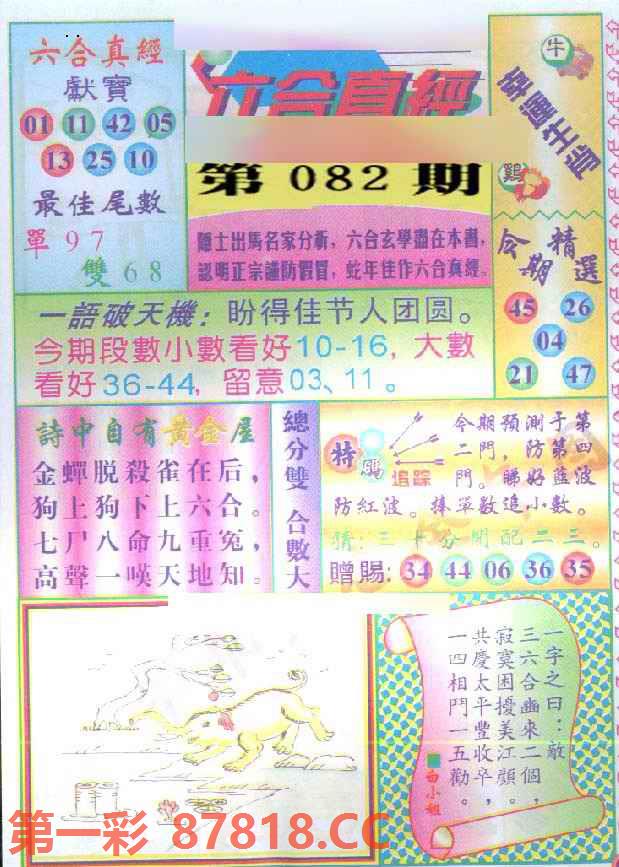 六合真經
獻寶
01 11 42 05
13 25 10
最佳尾數
單 9 7
雙 6 8
六合真經
第 082 期
隱士出馬名家分析，六合玄學盡在本書，
認明正宗謹防假冒，蛇年佳作六合真經。
牛
幸運生肖
鷄
今期精選
45 26
04
21 47
一語破天機：盼得佳节人团圆。
今期段數小數看好10-16，大數
看好36-44，留意03、11。
詩中自有黃金屋
金蟬脱殺雀在后，
狗上狗下上六合。
七尸八命九重冤，
高聲一嘆天地知。
總分雙 合數大
特
追踪
今期預測于第
二門，防第四
門。睇好藍波
防紅波。捧單數追小數。
猜：三十分開配二三。
贈賜：34 44 06 36 35
一字之曰：敵
三六合幽來二個，
寂寞困擾美江顧。
共慶太平豐收卒，
一四相門一五勸。
白小姐
第一彩 87818.CC